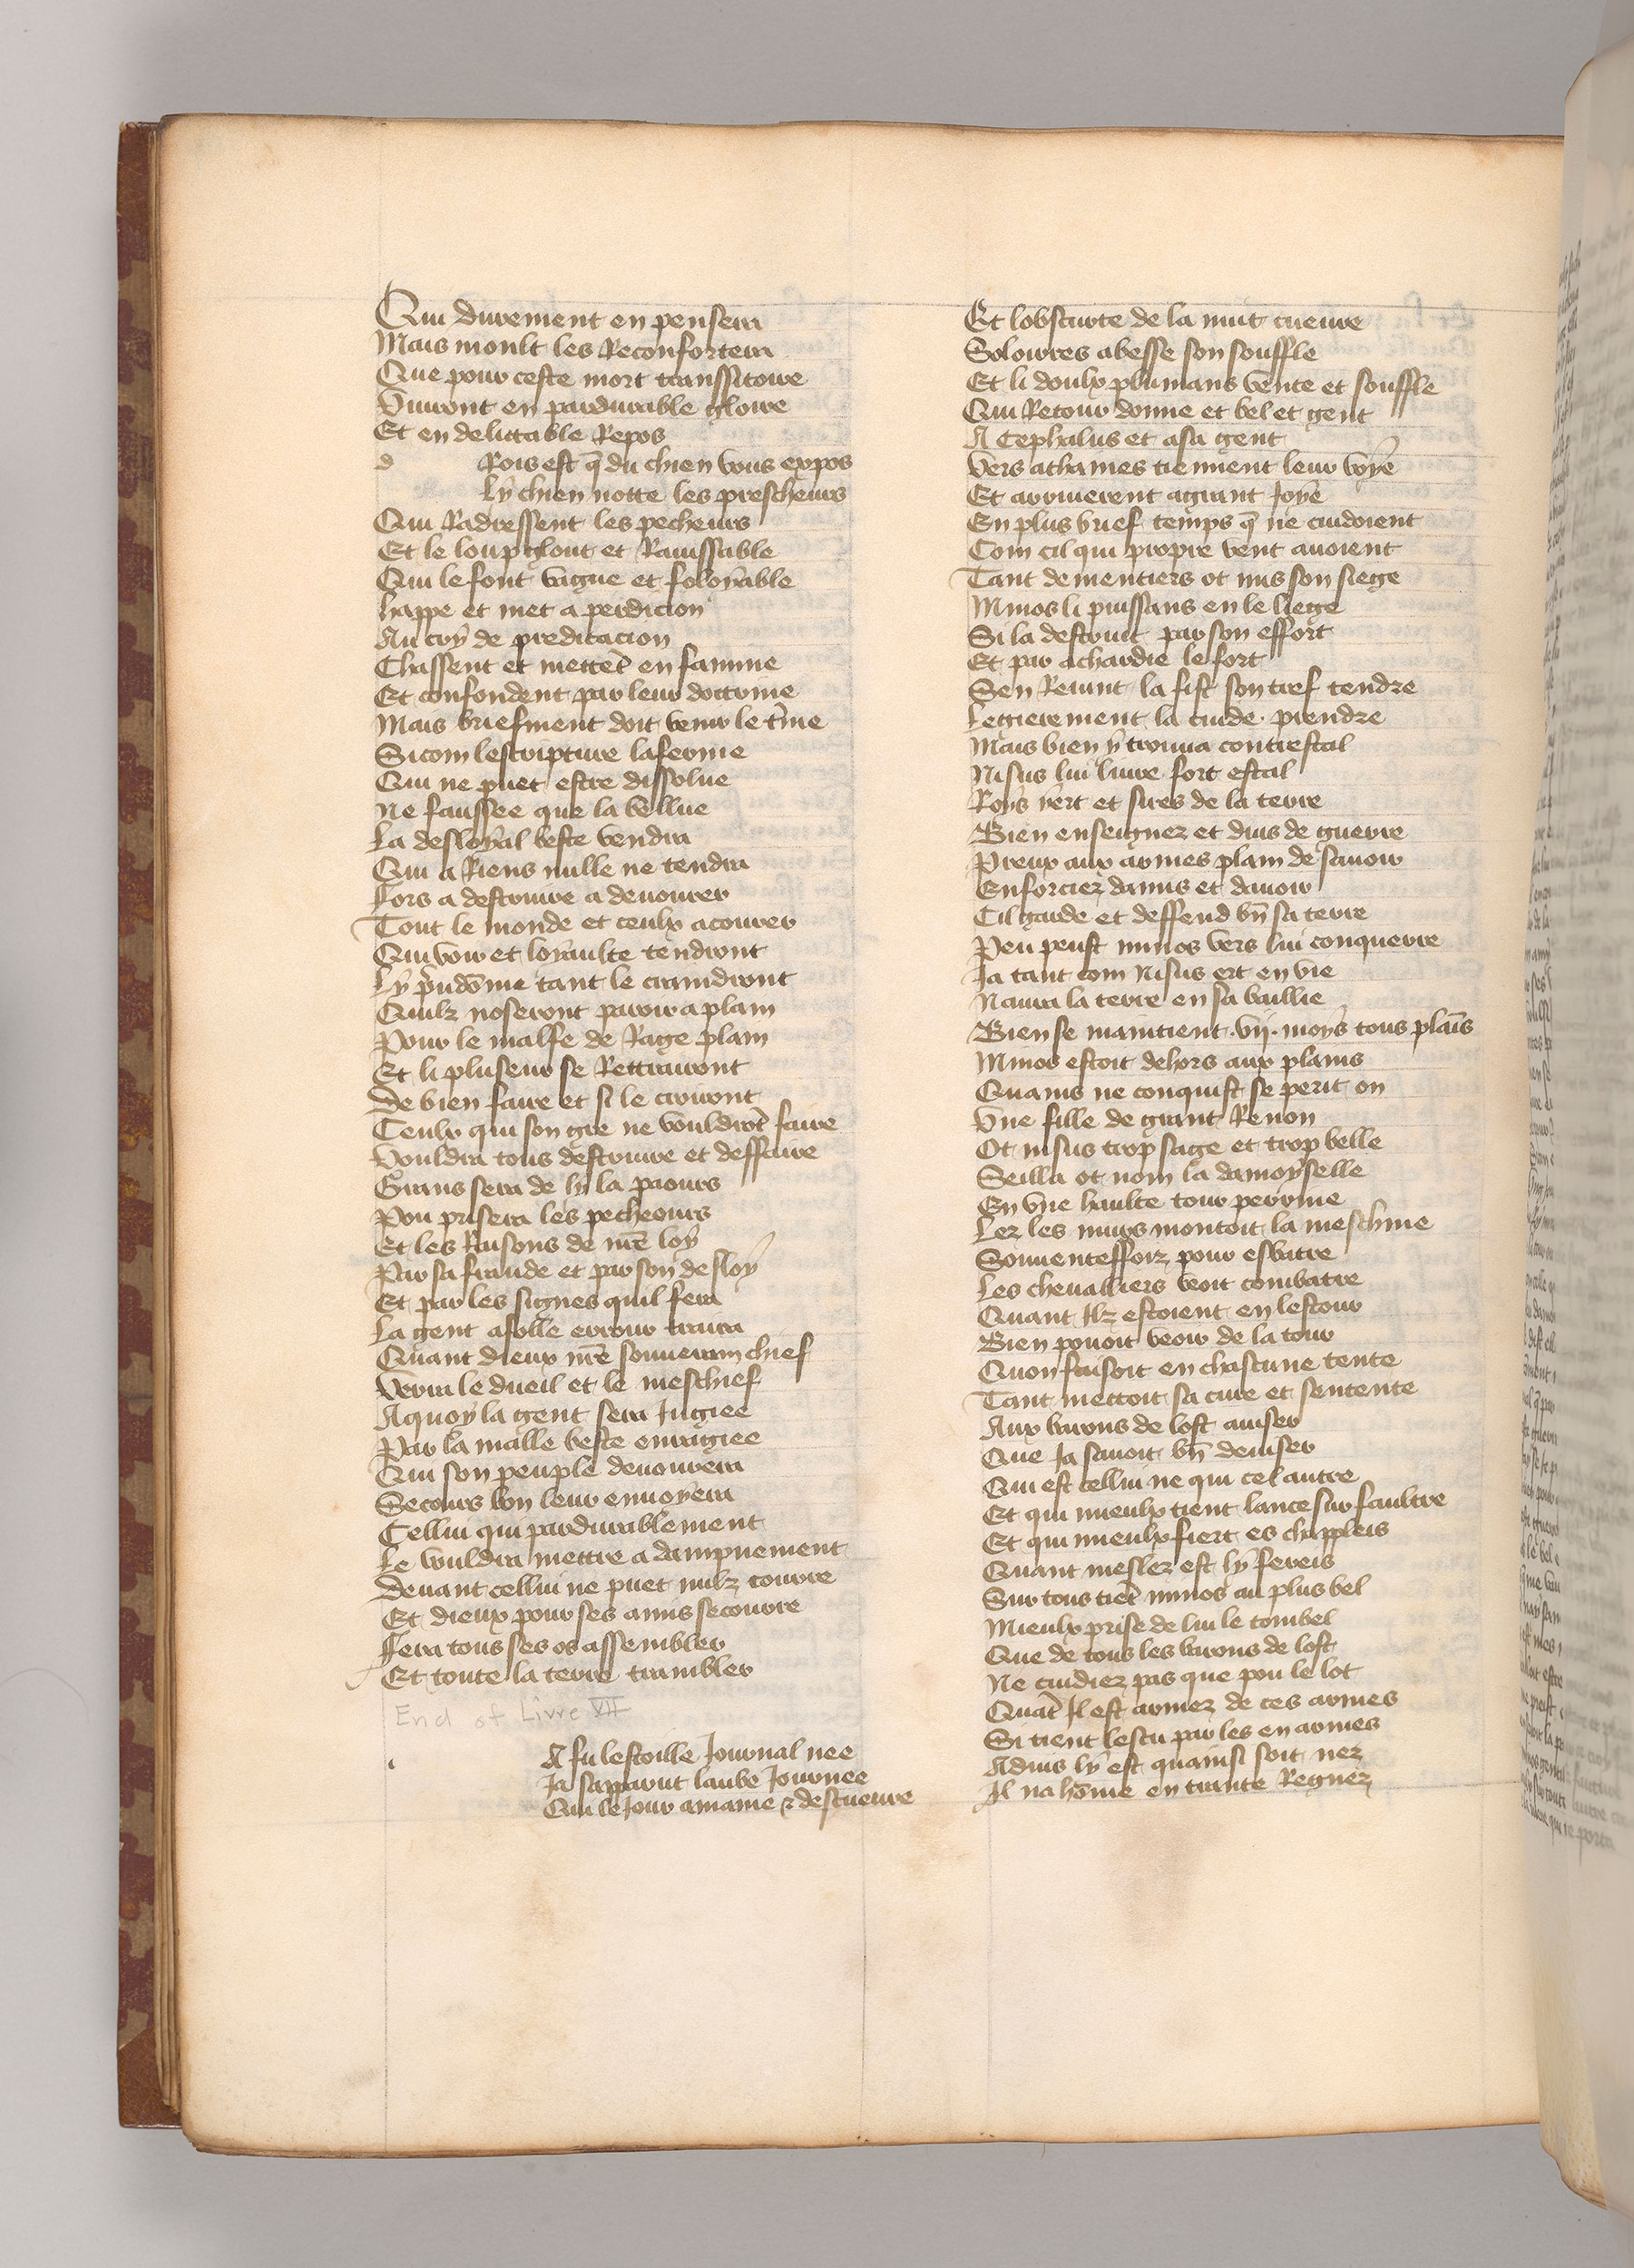 Qui durement en pensera
Mais moult les Reconfortera
Que pour ceste mort transsitoire
Viuront en pardurable gloire
Et en delittable Repos
d Rois est q̄ du chien vous expos
Ly chien notte les prescheurs
Qui Radressent les pecheurs
Et le loup glout et Rauissable
Qui le font vague et foloyable
happe et met a perdicion
Au cry de predicacion
Chassent et mettēt en famine
Et confondent par leur doctrine
Mais briefment doit venir le t̄me
Sicom lescripture laferme
Qui ne puet estre dissolue
Ne faussee que la bellue
La desloyal beste vendra
Qui a Riens nulle ne tendra
Fors a destruire a deuourer
Tout le monde et ceulx acourer
Qui voir et loyaulte tendront
Ly p̄udōme tant le craindront
Quilz noseront paroir a plain
Pour le malfe de Rage plain
Et li pluseur se Rettrairont
De bien faire et si le croiront
Ceulx qui son gre ne vouldrōt faire
Vouldra tous destruire et deffaire
Grans sera de ly la paours
Pou prisera les pecheours
Et les Raisons de nr̄e loy
Par sa fraude et par son desloy
Et par les signes quil fera
La gent a folle errour traira
Quant dieux nr̄e souuerain chief
Verra le dueil et le meschief
A quoy la gent sera Jugiee
Par la malle beste enragiee
Qui son peuple deuourera
Secours bon leur enuoyera
Cellui qui pardurablement
Le vouldra mettre a dampnement
Deuant cellui ne puet nulz courre
Et dieux pour ses amis secourre
Fera tous ses os assembler
Et toute la terre trambler
End of Livre VII
A fu lestoille Journal nee
Ja sapparut laube Journee
Qui le Jour amaine & descueure
Et lobscurte de la nuit cueure
Solowres abesse son souffle
Et li doulx plumans vente et souffle
Qui Retour donne et bel et gent
A Cephalus et a sa gent
Vers athaines tiennent leur voye
Et arriuerent a grant Joye
En plus brief temps q̄ ne cuidoient
Com cil qui propre vent auoient
Tant dementiers ot mis son siege
Minos li puissans en le liege
Si la destruit par son effort
Et par achardie le fort
Sen Reuint la fist son tref tendre
Legierement la cuide prendre
Mais bien y trouua contrestal
Nisus lui liure fort estal
Roys yert et sires de la terre
Bien enseignez et duis de guerre
Preux aux armes plain de sauoir
Enforciez damis et dauoir
Cil garde et deffend bn̄ sa terre
Peu peust minos vers lui conquerre
Ja tant com Nisus ert en vie
Naura la terre en sa baillie
Bien se maintient .vij. moys tous plaīs
Minos estoit dehors aux plains
Quains ne conquist se perit on
Vne fille de grant Renon
Ot nisus trop sage et trop belle
Seilla ot nom la damoyselle
En vne haulte tour perrine
Lez les murs montoit la meschine
Souuenteffoiz pour esbatre
Les cheualiers veoit combatre
Quant Ilz estoient en lestour
Bien pouoit veoir de la tour
Quon faisoit en chascune tente
Tant mettoit sa cure et sentente
Aux barons de lost auiser
Que Ja sauoit bn̄ deuiser
Qui est cellui ne qui cel autre
Et qui mieulx tient lance sur faultre
Et qui mieulx fiert es chappleis
Quant meslez est ly fereis
Sur tous tiēt minos au plus bel
Mieulx prise de lui le tombel
Que de tous les barons de lost
Ne cuidiez pas que pou le lot
Quāt Il est armez de ces armes
Si tient lescu par les enarmes
Aduis ly est quainsi soit nez
Il na hōme en trante Regnez